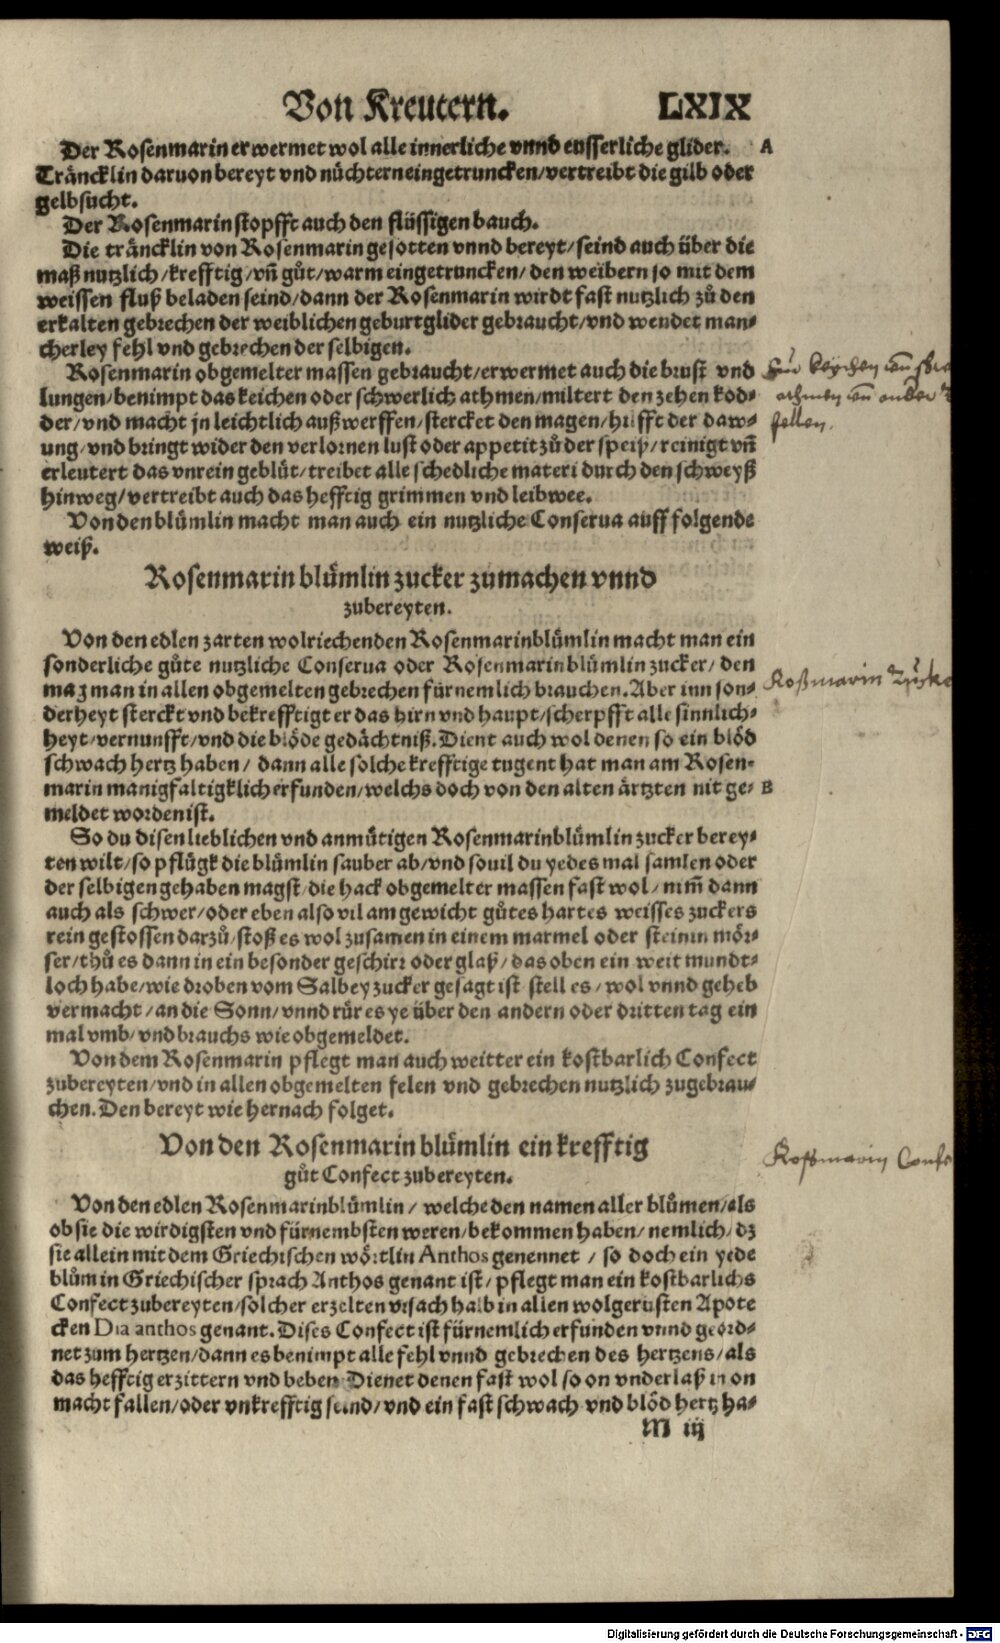 Von Kreutern. LXIX
Der Rosenmarin erwermet wol alle innerliche vnnd eusserliche glider. A
Träncklin daruon bereyt vnd nüchtern eingetruncken/vertreibt die gilb oder
gelbsucht.
Der Rosenmarin stopfft auch den flüssigen bauch.
Die träncklin von Rosenmarin gesotten vnnd bereyt/seind auch über die
maß nutzlich/krefftig/vñ gůt/warm eingetruncken/den weibern so mit dem
weissen fluß beladen seind/dann der Rosenmarin wirdt fast nutzlich zů den
erkalten gebrechen der weiblichen geburtglider gebraucht/vnd wendet man⸗
cherley fehl vnd gebrechen der selbigen.
Rosenmarin obgemelter massen gebraucht/erwermet auch die brust vnd
lungen/benimpt das keichen oder schwerlich athmen/miltert den zehen köd⸗
der/vnd macht jn leichtlich außwerffen/stercket den magen/hilfft der daw⸗
ung/vnd bringt wider den verlornen lust oder appetit zů der speiß/reinigt vñ
erleutert das vnrein geblüt/treibet alle schedliche materi durch den schweyß
hinweg/vertreibt auch das hefftig grimmen vnd leibwee.
Von den blůmlin macht man auch ein nutzliche Conserua auff folgende
weiß.
Für keychen vnd
athmen vnd ander
fellen.
Rosenmarin blůmlin zucker zumachen vnnd
zubereyten.
Von den edlen zarten wolriechenden Rosenmarinblůmlin macht man ein
sonderliche gůte nutzliche Conserua oder Rosenmarinblůmlin zucker/den
mag man in allen obgemelten gebrechen fürnemlich brauchen. Aber inn son⸗
derheyt sterckt vnd bekrefftigt er das hirn vnd haupt/scherpfft alle sinnlich⸗
heyt/vernunfft/vnd die blöde gedächtniß. Dient auch wol denen so ein blöd
schwach hertz haben/dann alle solche krefftige tugent hat man am Rosen⸗
marin manigfaltigklich erfunden/welchs doch von den alten ärtzten nit ge⸗ B
meldet worden ist.
Roßmarin Zucke
So du disen lieblichen vnd anmůtigen Rosenmarinblůmlin zucker berey⸗
ten wilt/so pflügk die blůmlin sauber ab/vnd souil du yedes mal samlen oder
der selbigen gehaben magst/die hack obgemelter massen fast wol/nim̃ dann
auch als schwer/oder eben also vil am gewicht gůtes hartes weisses zuckers
rein gestossen darzů/stoß es wol zusamen in einem marmel oder steinin mör⸗
ser/thů es dann in ein besonder geschirr oder glaß/das oben ein weit mundt⸗
loch habe/wie droben vom Salbey zucker gesagt ist stell es/wol vnnd geheb
vermacht/an die Sonn/vnnd rür es ye über den andern oder dritten tag ein
mal vmb/vnd brauchs wie obgemeldet.
Von dem Rosenmarin pflegt man auch weitter ein kostbarlich Confect
zubereyten/vnd in allen obgemelten felen vnd gebrechen nutzlich zugebrau⸗
chen. Den bereyt wie hernach folget.
Von den Rosenmarin blůmlin ein krefftig
gůt Confect zubereyten.
Roßmarin Confe
Von den edlen Rosenmarinblůmlin/welche den namen aller blůmen/als
ob sie die wirdigsten vnd fürnembsten weren/bekommen haben/nemlich/dz
sie allein mit dem Griechischen wörtlin Anthos genennet/so doch ein yede
blům in Griechischer sprach Anthos genant ist/pflegt man ein kostbarlichs
Confect zubereyten/solcher erzelten vrsach halb in allen wolgerüsten Apote
cken Dia anthos genant. Dises Confect ist fürnemlich erfunden vnnd geord⸗
net zum hertzen/dann es benimpt alle fehl vnnd gebrechen des hertzens/als
das hefftig erzittern vnd beben. Dienet denen fast wol so on vnderlaß in on
macht fallen/oder vnkrefftig seind/vnd ein fast schwach vnd blöd hertz ha⸗
M iij
Digitalisierung gefördert durch die Deutsche Forschungsgemeinschaft - DFG